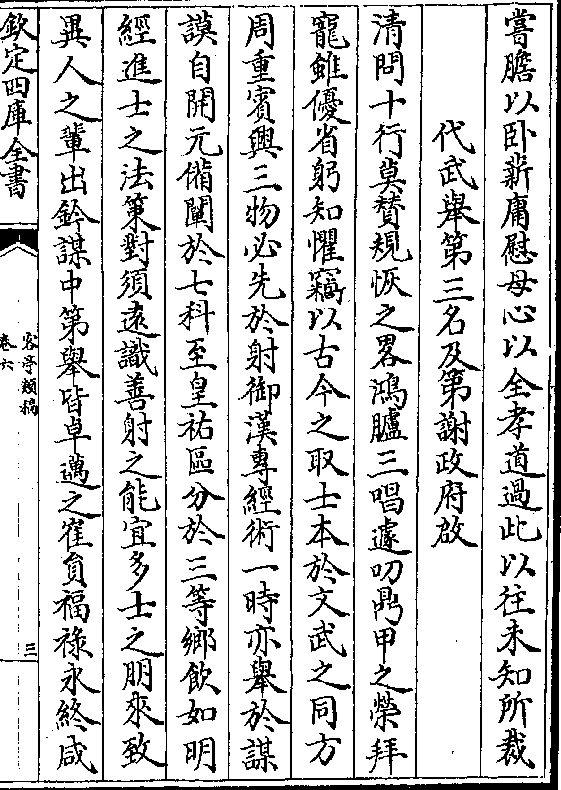 嘗膽以卧薪庸慰母心以全孝道過此以往未知所裁
代武舉第三名及第謝政府啟
清問十行莫賛規恢之畧鴻臚三唱遽叨鼎甲之榮拜
寵雖優省躬知懼竊以古今之取士本於文武之同方
周重賓興三物必先於射御漢專經術一時亦舉於謀
謨自開元備闡於七科至皇祐區分於三等鄉飲如明
經進士之法策對須遠識善射之能宜多士之朋來致
異人之輩出鈐謀中第舉皆卓邁之才員福禄永終咸
欽定四庫全書
客亭類稿
卷六
三